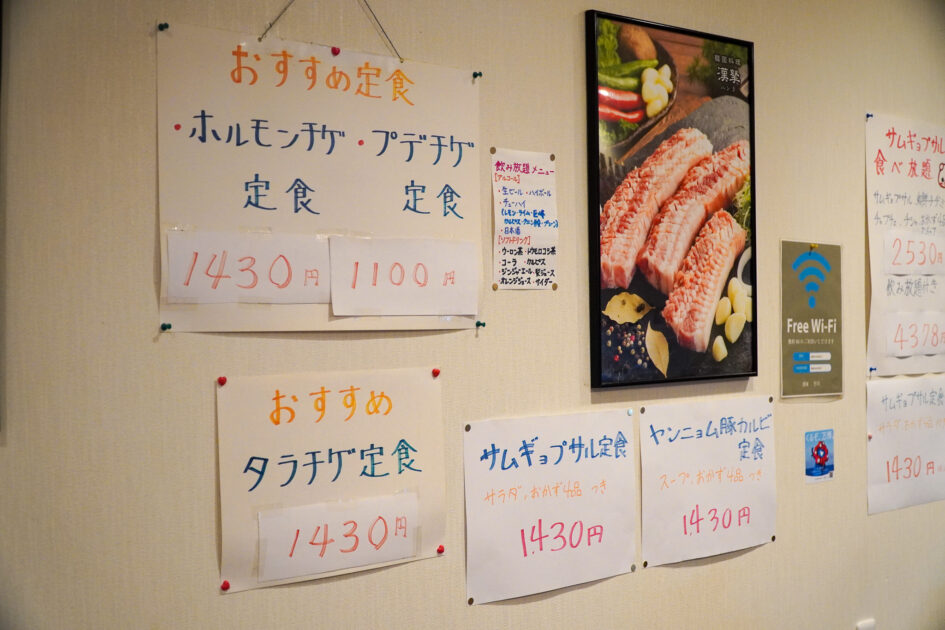 おすすめ定食
・ホルモンチゲ・プデチゲ
定食 定食
1430円 1100円
飲み放題メニュー
[アルコール]
・生ビール・ハイボール
・チューハイ
・日本酒
[ソフトドリンク]
・ウーロン茶・トウモロコシ茶
・コーラ ・カルピス
・ジンジャーエール
・オレンジジュース・サイダー
韓国料理
漢拏
ハンラ
Free Wi-Fi
サムギョプサル
食べ放題
2530円
飲み放題付き
4378円
おすすめ
タラチゲ定食
1430円
サムギョプサル定食
サラダ、おかず4品 つき
1,430円
ヤンニョム豚カルビ
定食
スープ、おかず4品 つき
1,430円
サムギョプサル定食
サラダ、おかず4品
1430円